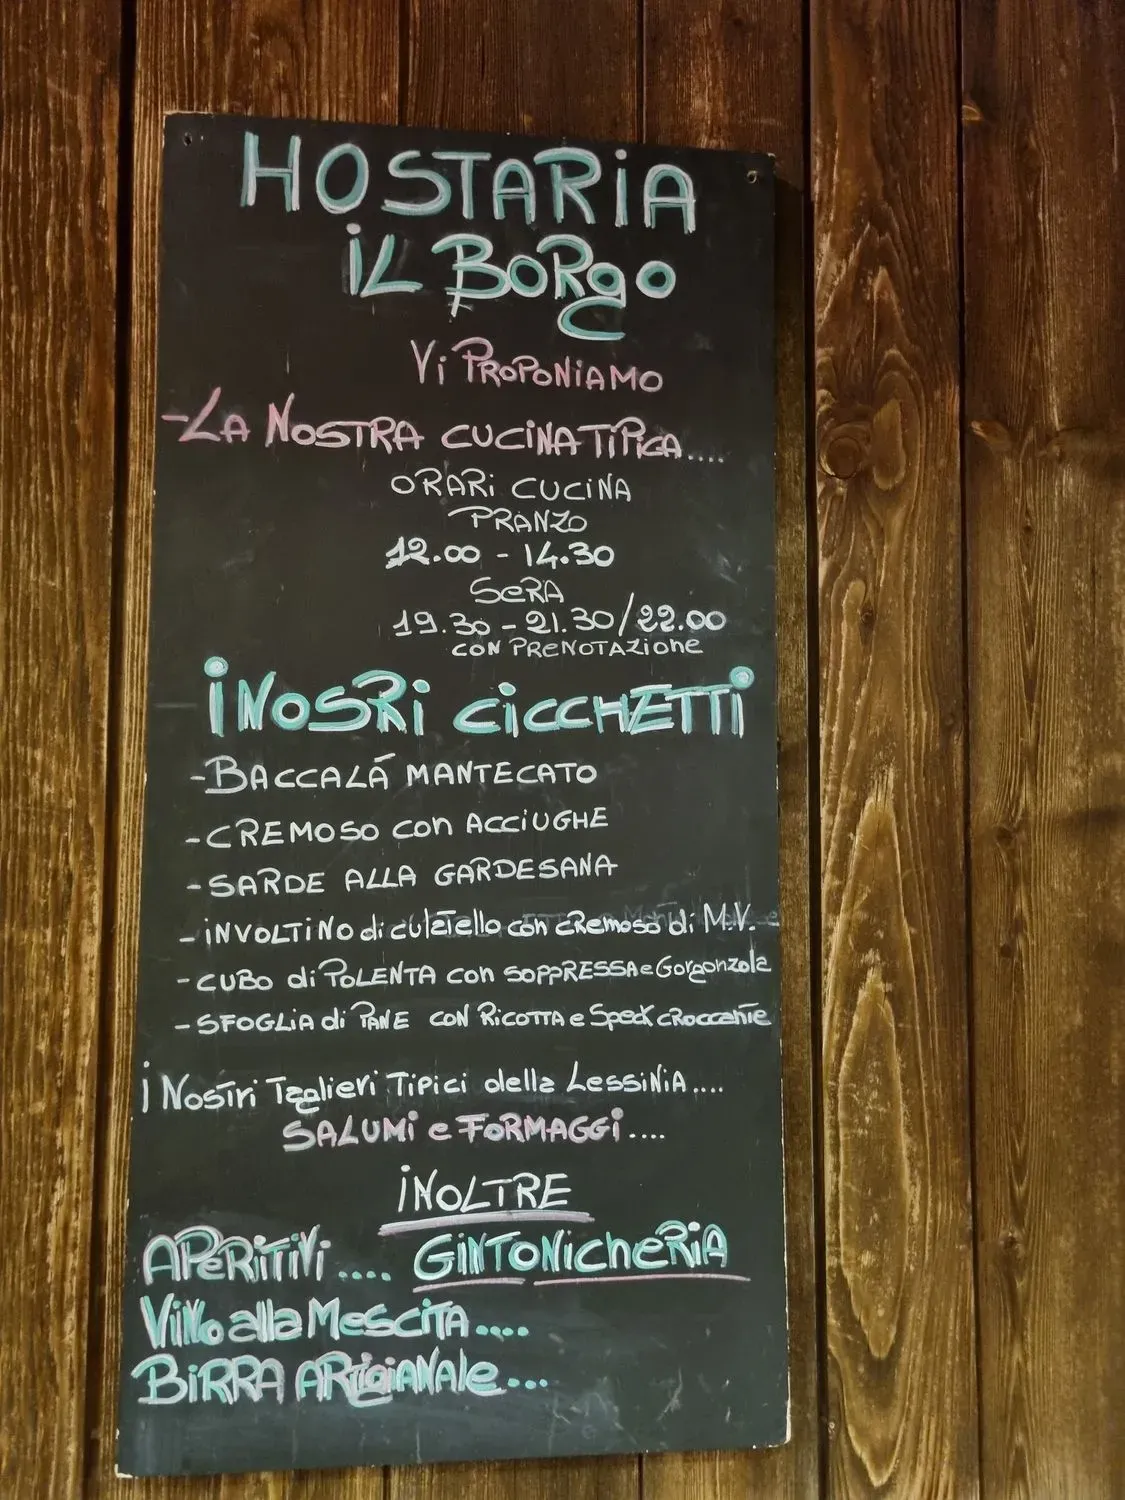 HOSTARIA
IL BORGO
Vi PROPONiAMO
-LA NOSTRA CUCINA TIPICA....
ORARI CUCINA
PRANZO
12.00 - 14.30
SERA
19.30 - 21.30/22.00
CON PRENOTAZIONE
I NOSRI CICCHETTI
-BACCALÁ MANTECATO
-CREMOSO con ACCIUGHE
-SARDE ALLA GARDESANA
-INVOLTINO di culatello con cremoso di M.V.
-CUBO di POLENTA con SOPPRESSA e Gorgonzola
-SFOGLIA di PANE CON RICOTTA e Speck croccante
i Nostri Taglieri Tipici della LESSINIA....
SALUMI e FORMAGGI....
INOLTRE
APERITIVI .... GINTONICHERIA
VINO alla MESCITA....
BIRRA ARTIGIANALE...